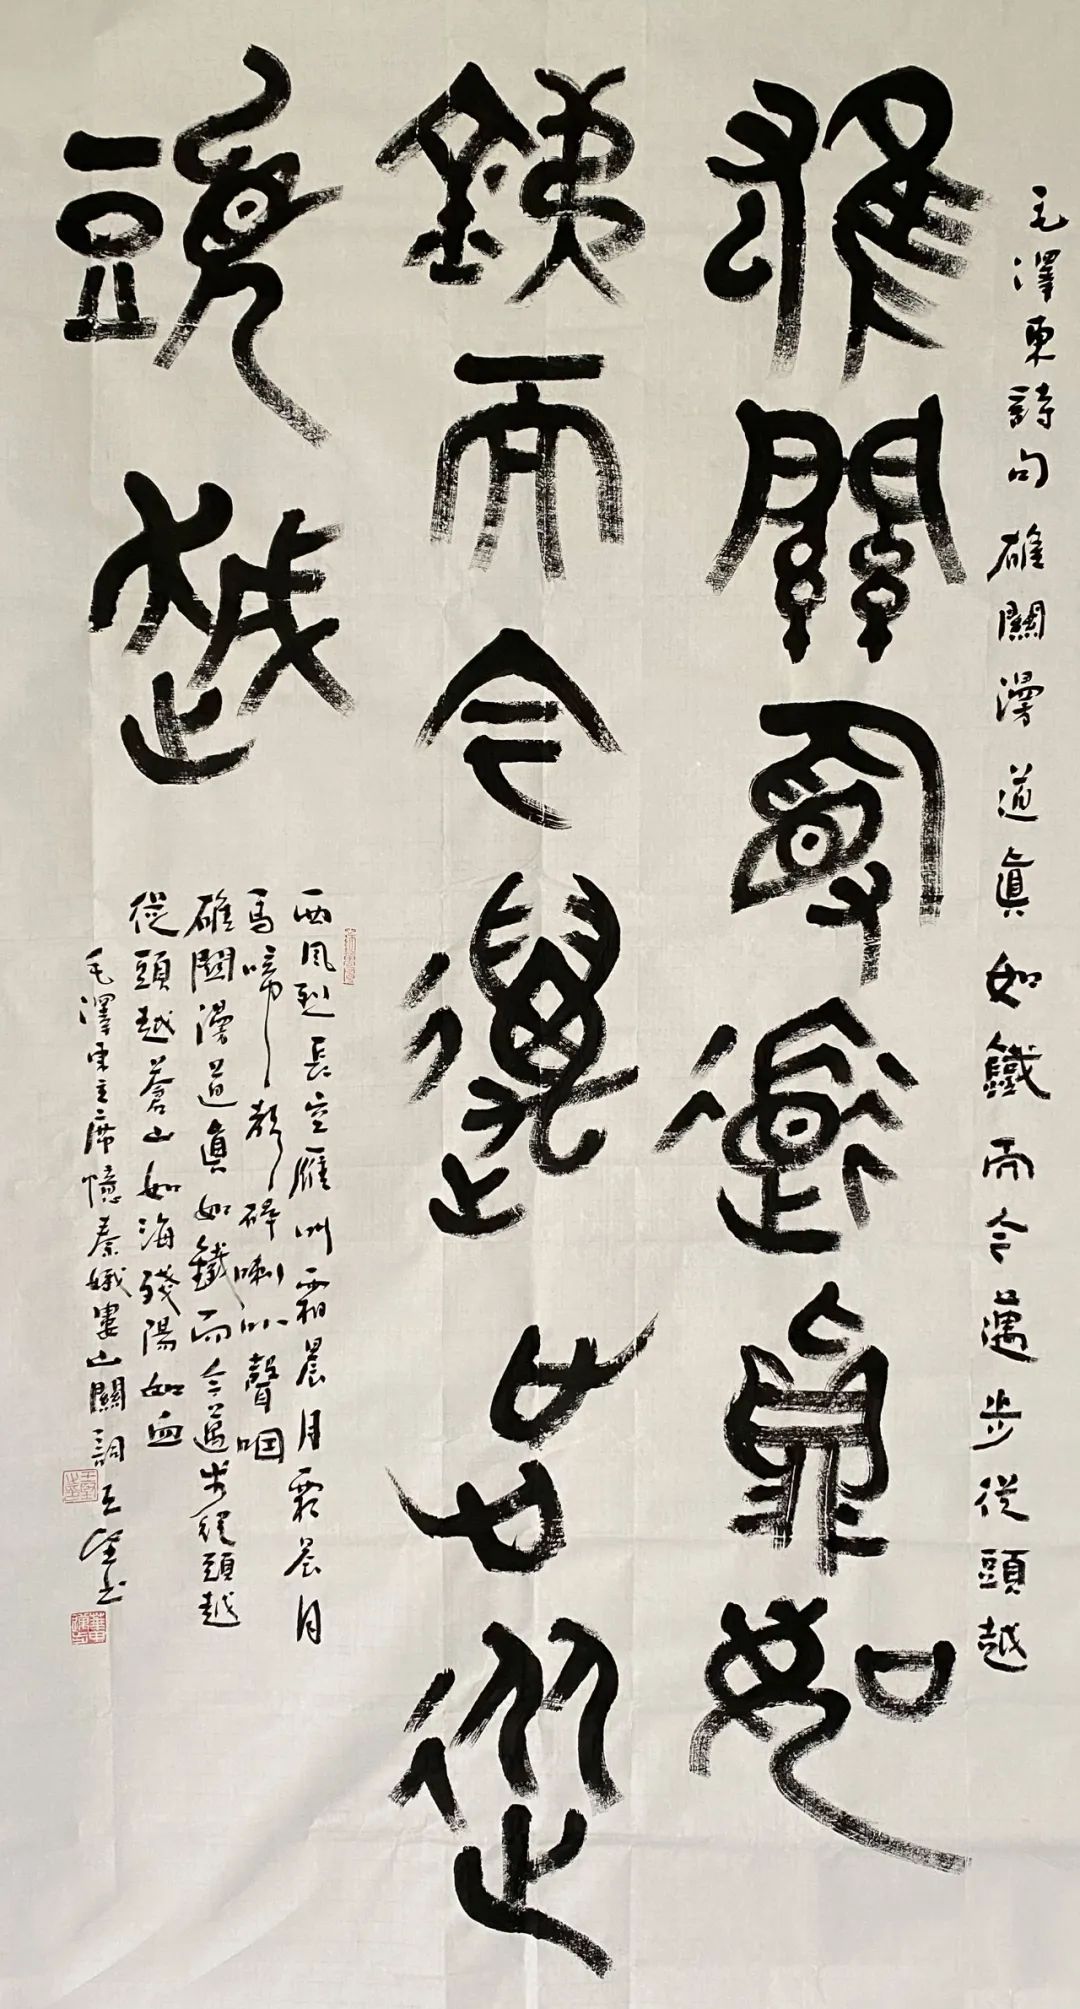 毛澤東詩句雄關漫道真如鐵而今邁步從頭越
雄關漫道真如
銕而今邁步從
頭越
西風烈長空雁叫霜晨月霜晨月
馬啼聲碎喇叭聲咽
雄關漫道真如鐵而今邁步從頭越
從頭越蒼山如海殘陽如血
毛澤東主席憶秦娥婁山關詞王書